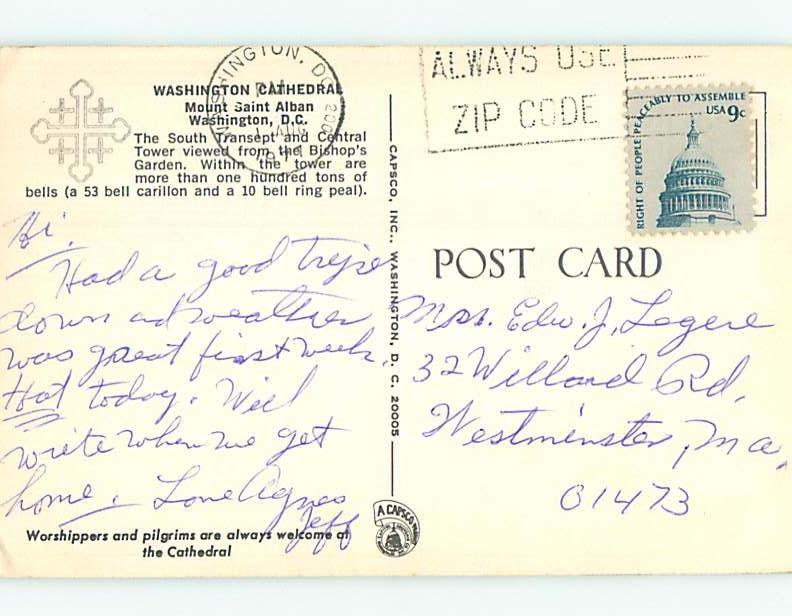 WASHINGTON CATHEDRAL
Mount Saint Alban
Washington, D.C.
The South Transept and Central
Tower viewed from the Bishop's
Garden. Within the tower are
more than one hundred tons of
bells (a 53 bell carillon and a 10 bell ring peal).
Hi.
Had a good trip
down and weather
was great first week.
Hot today. Will
write when we get
home. Love Agnes
Jeff
Worshippers and pilgrims are always welcome at
the Cathedral
CAPSCO, INC., WASHINGTON, D. C. 20005
A CAPSCO
WASHINGTON, DC
PM
ALWAYS USE
ZIP CODE
RIGHT OF PEOPLE PEACEABLY TO ASSEMBLE
USA 9c
POST CARD
Mrs. Edw. J. Legere
32 Willard Rd.
Westminster, Ma.
01473